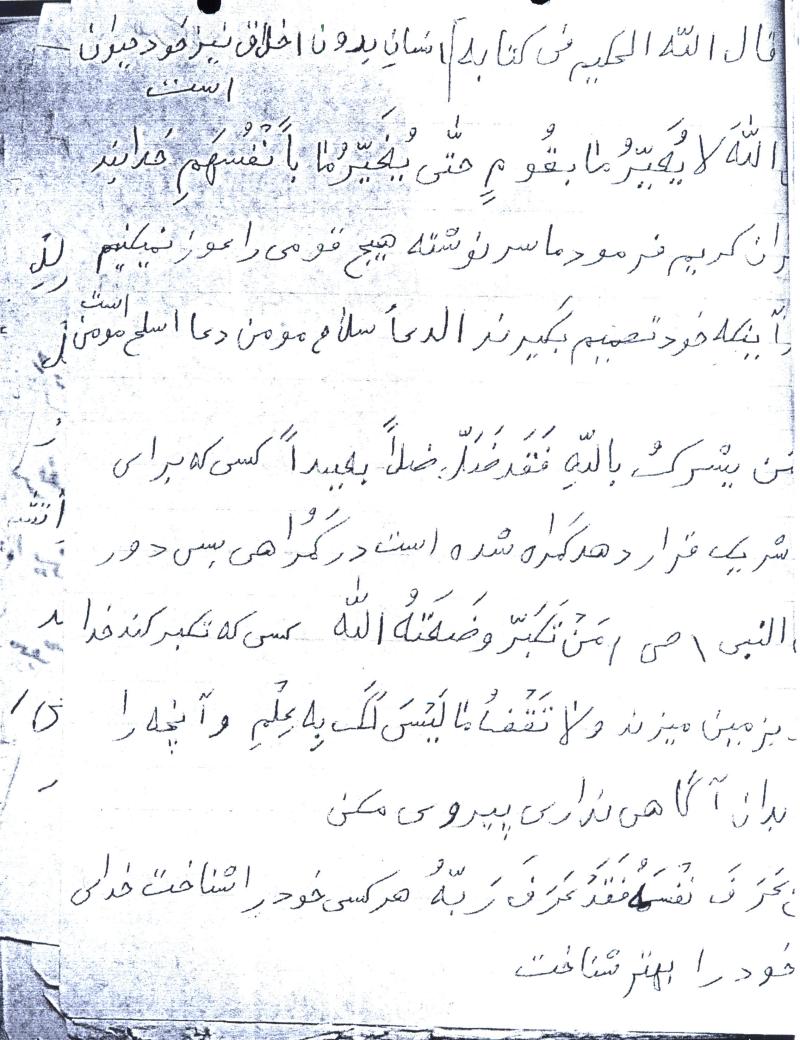 قال الله الحكيم فی كتابه / انسان بدون اخلاق نیز خود حیوان
است
الله لا يُغَيِّرُ ما بقُومٍ حتّٰى يُغَيِّرُ ما بأَنْفُسَهَمِ خداند
ران کریم فرمود ما سرنوشته هیچ قومی را عوز نمیکنیم
اینکه خود تصمیم بگیرند الدعأ سلاح مومن دعا اسلح مومن است
یشرکُ باللّهِ فَقَد ضَلّ ضلاً بعیداً کسی که برای
شریک قرار دهد گمراه شده است در گُمراهی بسی دور
النبی (ص) مَنْ تَكَبّرَ وضَعَتهُ اللّٰه کسی که تکبر کند خدا
بزمین میزند ولا تَقْفُ ما لَيْسَ لَکَ بِهِ عِلْمِ و آنچه را
بدان آگاهی نداری پیروی مکن
عَرَفَ نَفْسَهُ فَقَدَ عَرَفَ رَبّهُ هر کسی خود را شناخت خدای
خود را بهتر شناخت